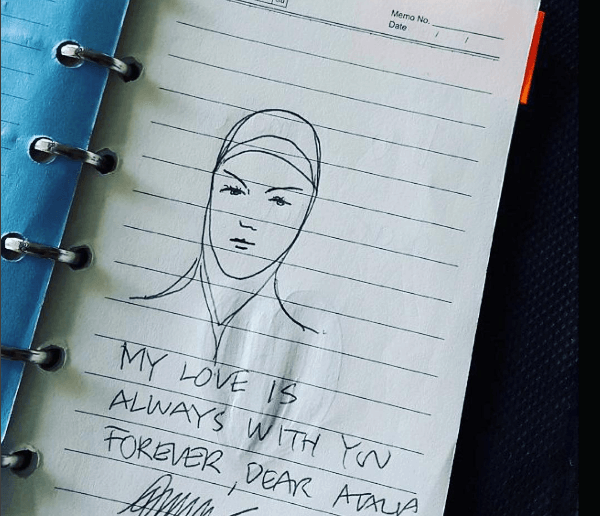 Memo No.
Date / /
MY LOVE IS
ALWAYS WITH YOU
FOREVER, DEAR ATALIA